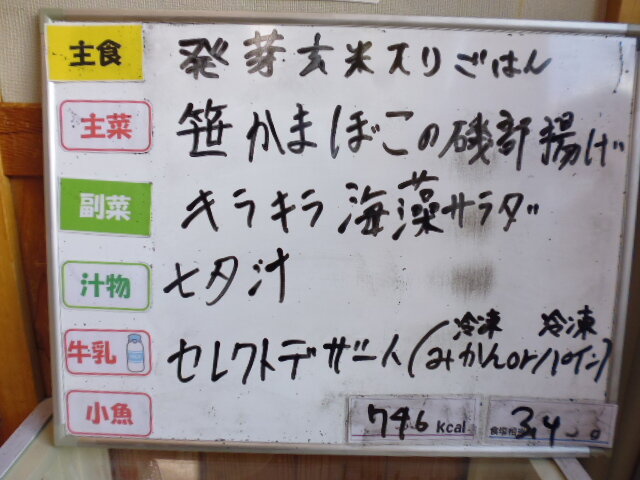 主食 発芽玄米入りごはん
主菜 笹かまぼこの磯部揚げ
副菜 キラキラ海藻サラダ
汁物 七夕汁
冷凍 冷凍
牛乳 セレクトデザート(みかんorパイン)
小魚 746 kcal 食塩相当 3.4